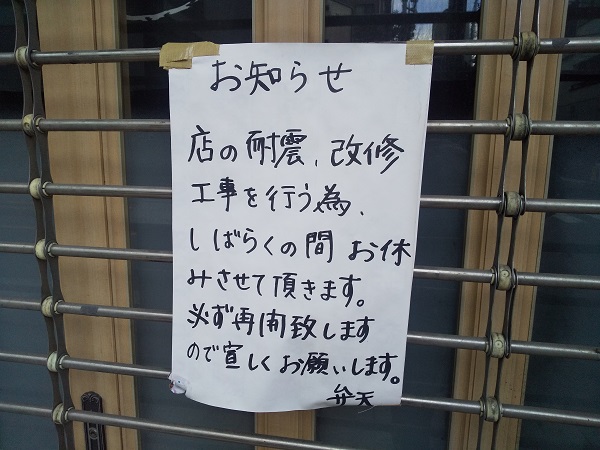 お知らせ
店の耐震、改修
工事を行う為、
しばらくの間 お休
みさせて頂きます。
必ず再開致します
ので宜しくお願いします。
弁天